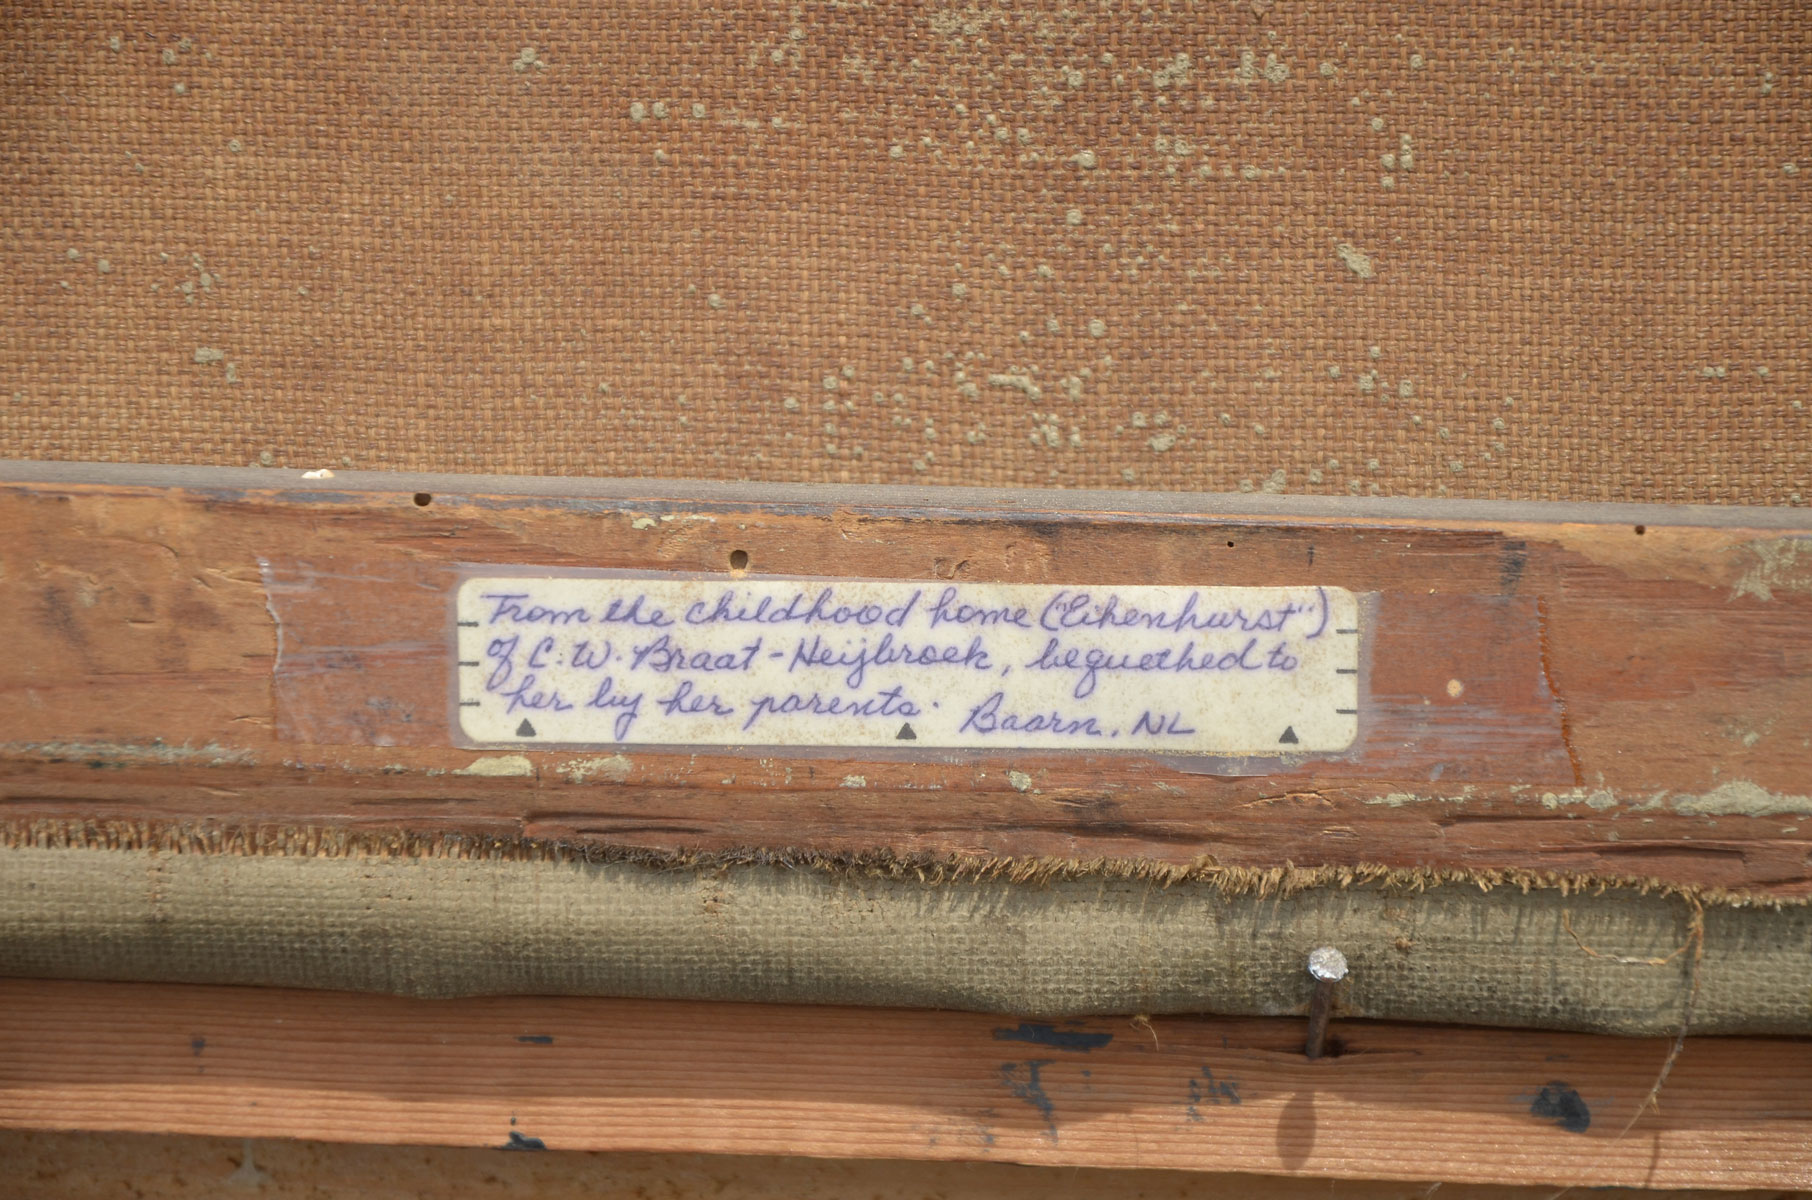 From the childhood home ("Eikenhurst")
of C.W. Braat-Heijbroek, bequethed to
her by her parents. Baarn, NL